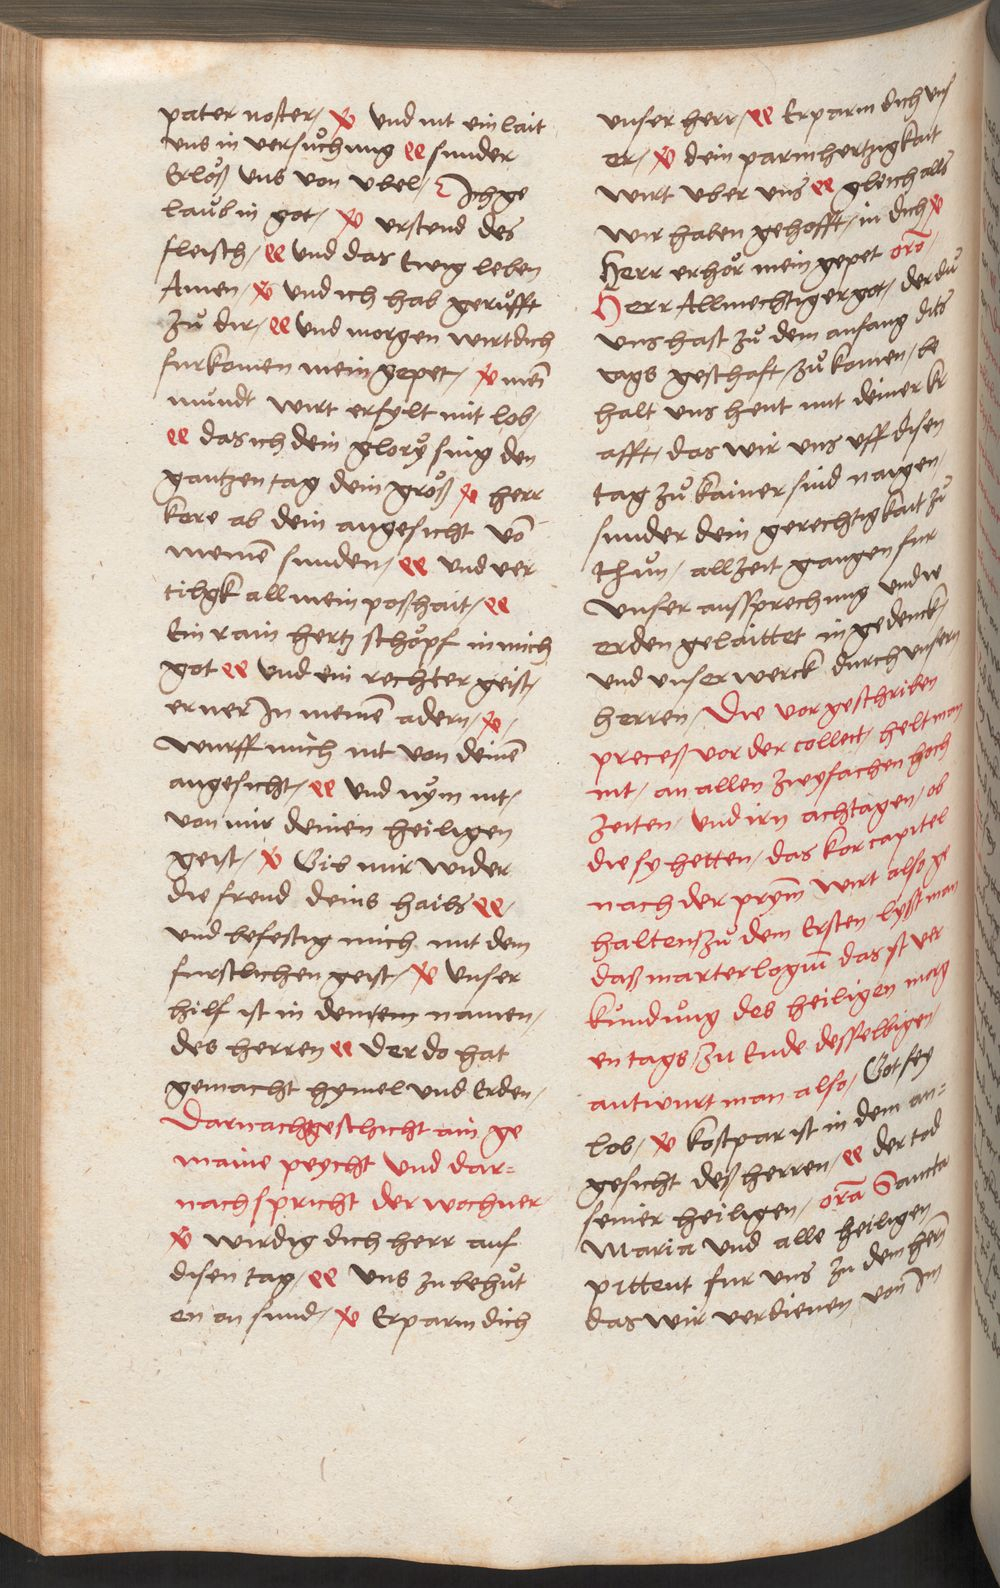 pater noster / ℣ Und nit ein lait
uns in versuͦchung ee sunder
Erloͤß uns von ubel / Ich ge
laub in got / ℣ urstend des
fleisch / ee und das Ewig leben
Amen / ℣ und ich hab geruͤfft
zuͦ dir / ee und morgen wirt dich
furkomen mein gepet / ℣ mein̄
mundt wirt erfylt mit lob /
ee das ich dein glory sing den
gantzen tag dein groͤß ℣ herr
kere ab dein angesicht vō
meinē sunden / ee und ver
tilgk all mein poßhait / ee
Ein rain hertz schoͤpf in mich
got ee und ein rechter geist /
erner In meinē adern / ℣ /
Wurff mich nit von deinē
angesicht / ee und nym nit /
von mir deinen heiligen
geist / ℣ Gib mir wider
die freud deins hails ee /
und befestig mich mit dem
furstlichen geist / ℣ Unser
hilf ist in dem namen /
des herren ee Der do hat
gemacht hymel und Erden /
Darnach geschicht ain ge
maine peycht und dar=
nach spricht der wochner /
℣ wirdig dich herr auf
disen tag / ee uns zu behuͤt
en on sund / ℣ Erparm dich
unser herr / ee Erparm dich uns
er / ℣ dein parmhertzigkait
wirt uber uns ee gleich alls
wir haben gehofft / in dich ℣
Herr erhoͤr mein gepet orō /
Herr Allmechtiger got / der du
uns hast zuͦ dem anfang dits
tags geschaft / zuͦ komen / be
halt uns heut mit deiner kr
afft / das wir uns uff disen
tag zuͦ kainer sind naigen /
sunder dein gerechtigkait zuͦ
thuͦn / allzeit gangen fur
unser aussprechung und w
erden gelaittet in gedenck /
und unser werck durch unsern
herren / Die vor geschriben
preceß vor der collect / helt man
nit / an allen zwyfachen hoch
zeiten / und irn achtagen / ob
die sy hetten / das kor capitel
nach der prym̄ wirt also ge
halten / zuͦ dem Ersten / lysst man
daß marterlogiū das ist ver
kundung des heiligen morg
en tags / zu Ende desselbigen /
antwurt man also / Got sey
lob / ℣ kostpar ist in dem an=
gesicht deß herren / ee der tod
seiner heiligen / orā Sancta
Maria und alle heiligen
pittent fur uns zu dem hern̄
das wir verdienen von Im